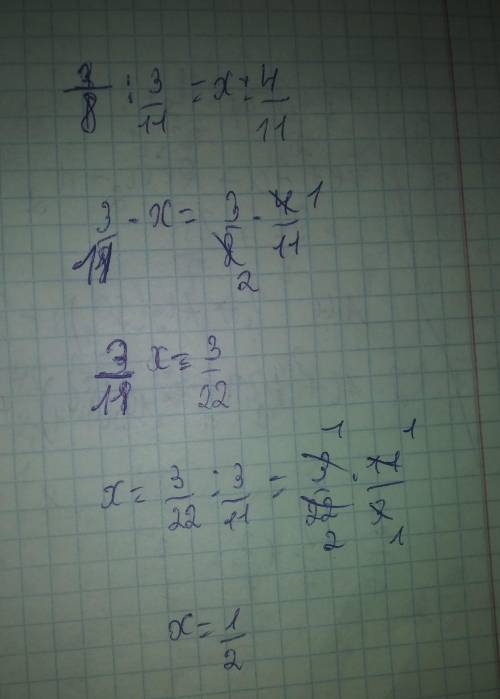 3/8 : 3/11 = x : 4/11
3/11 · x = 3/8 · 4/11 1 2
3/11 x = 3/22
x = 3/22 : 3/11 = 3/22 · 11/3 1 1 2 1
x = 1/2